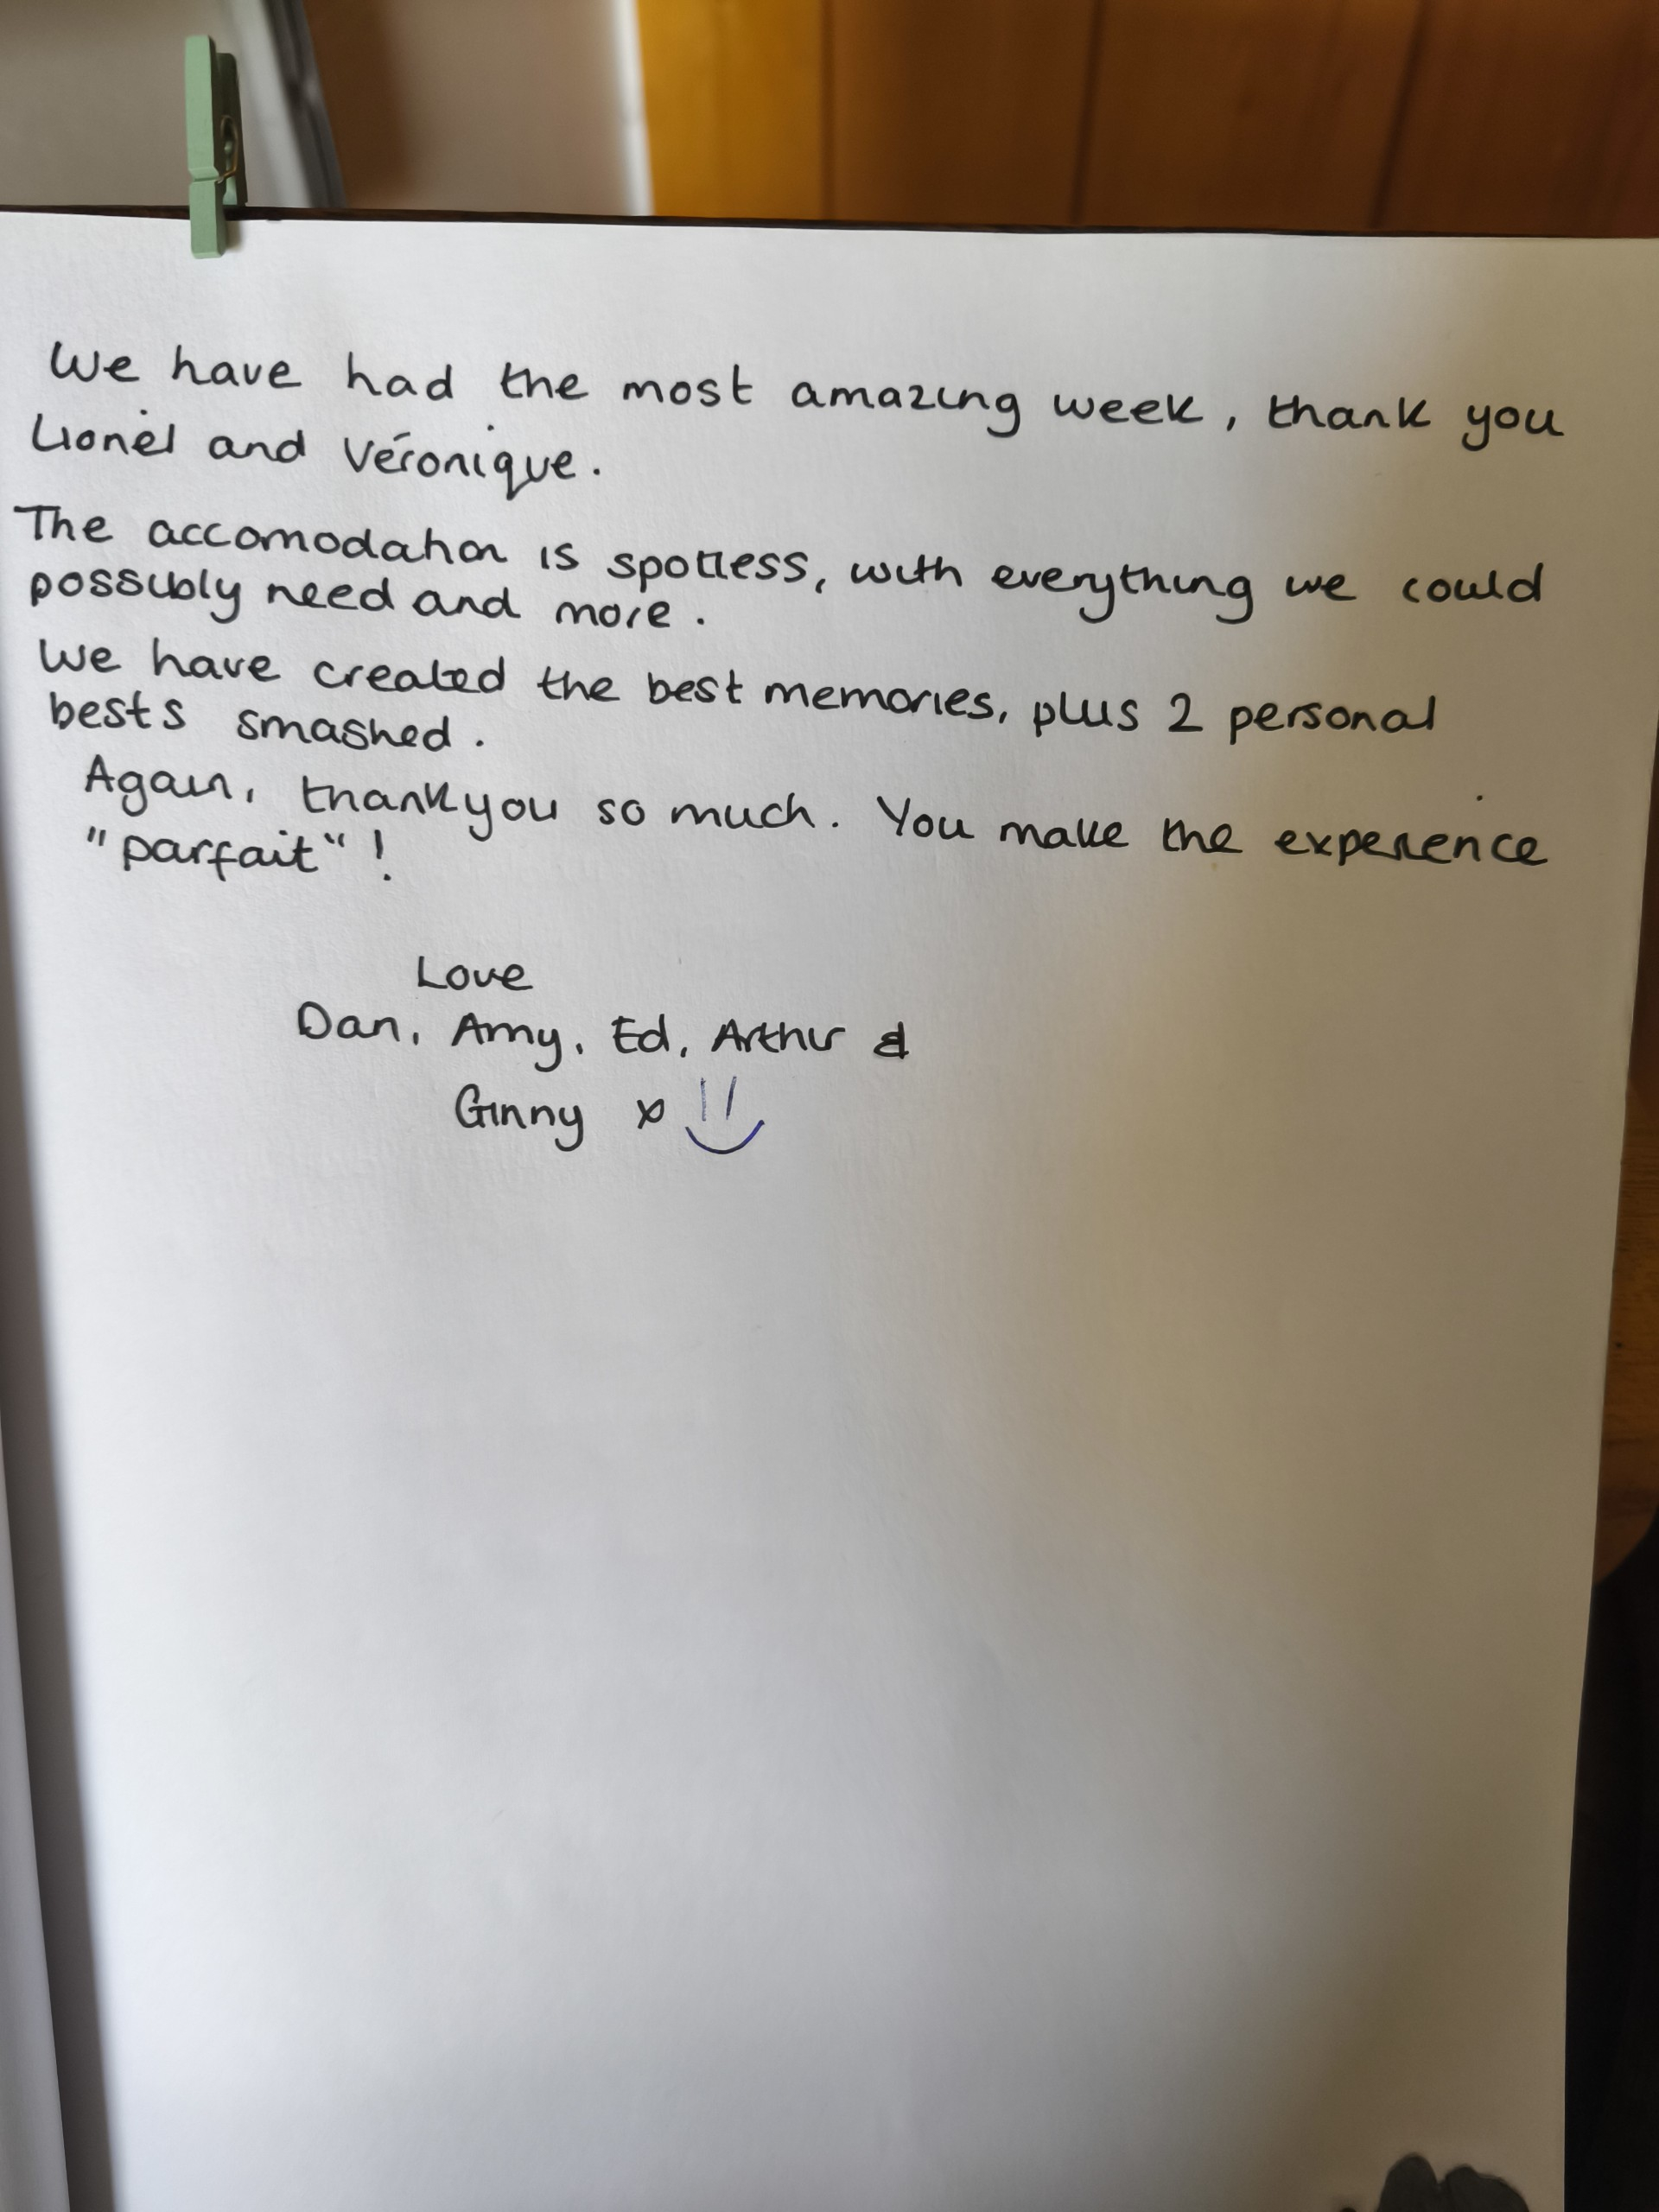 We have had the most amazing week, thank you
Lionel and Véronique.
The accomodation is spotless, with everything we could
possibly need and more.
We have created the best memories, plus 2 personal
bests smashed.
Again, thankyou so much. You make the experience
"parfait"!
Love
Dan, Amy, Ed, Arthur &
Ginny x